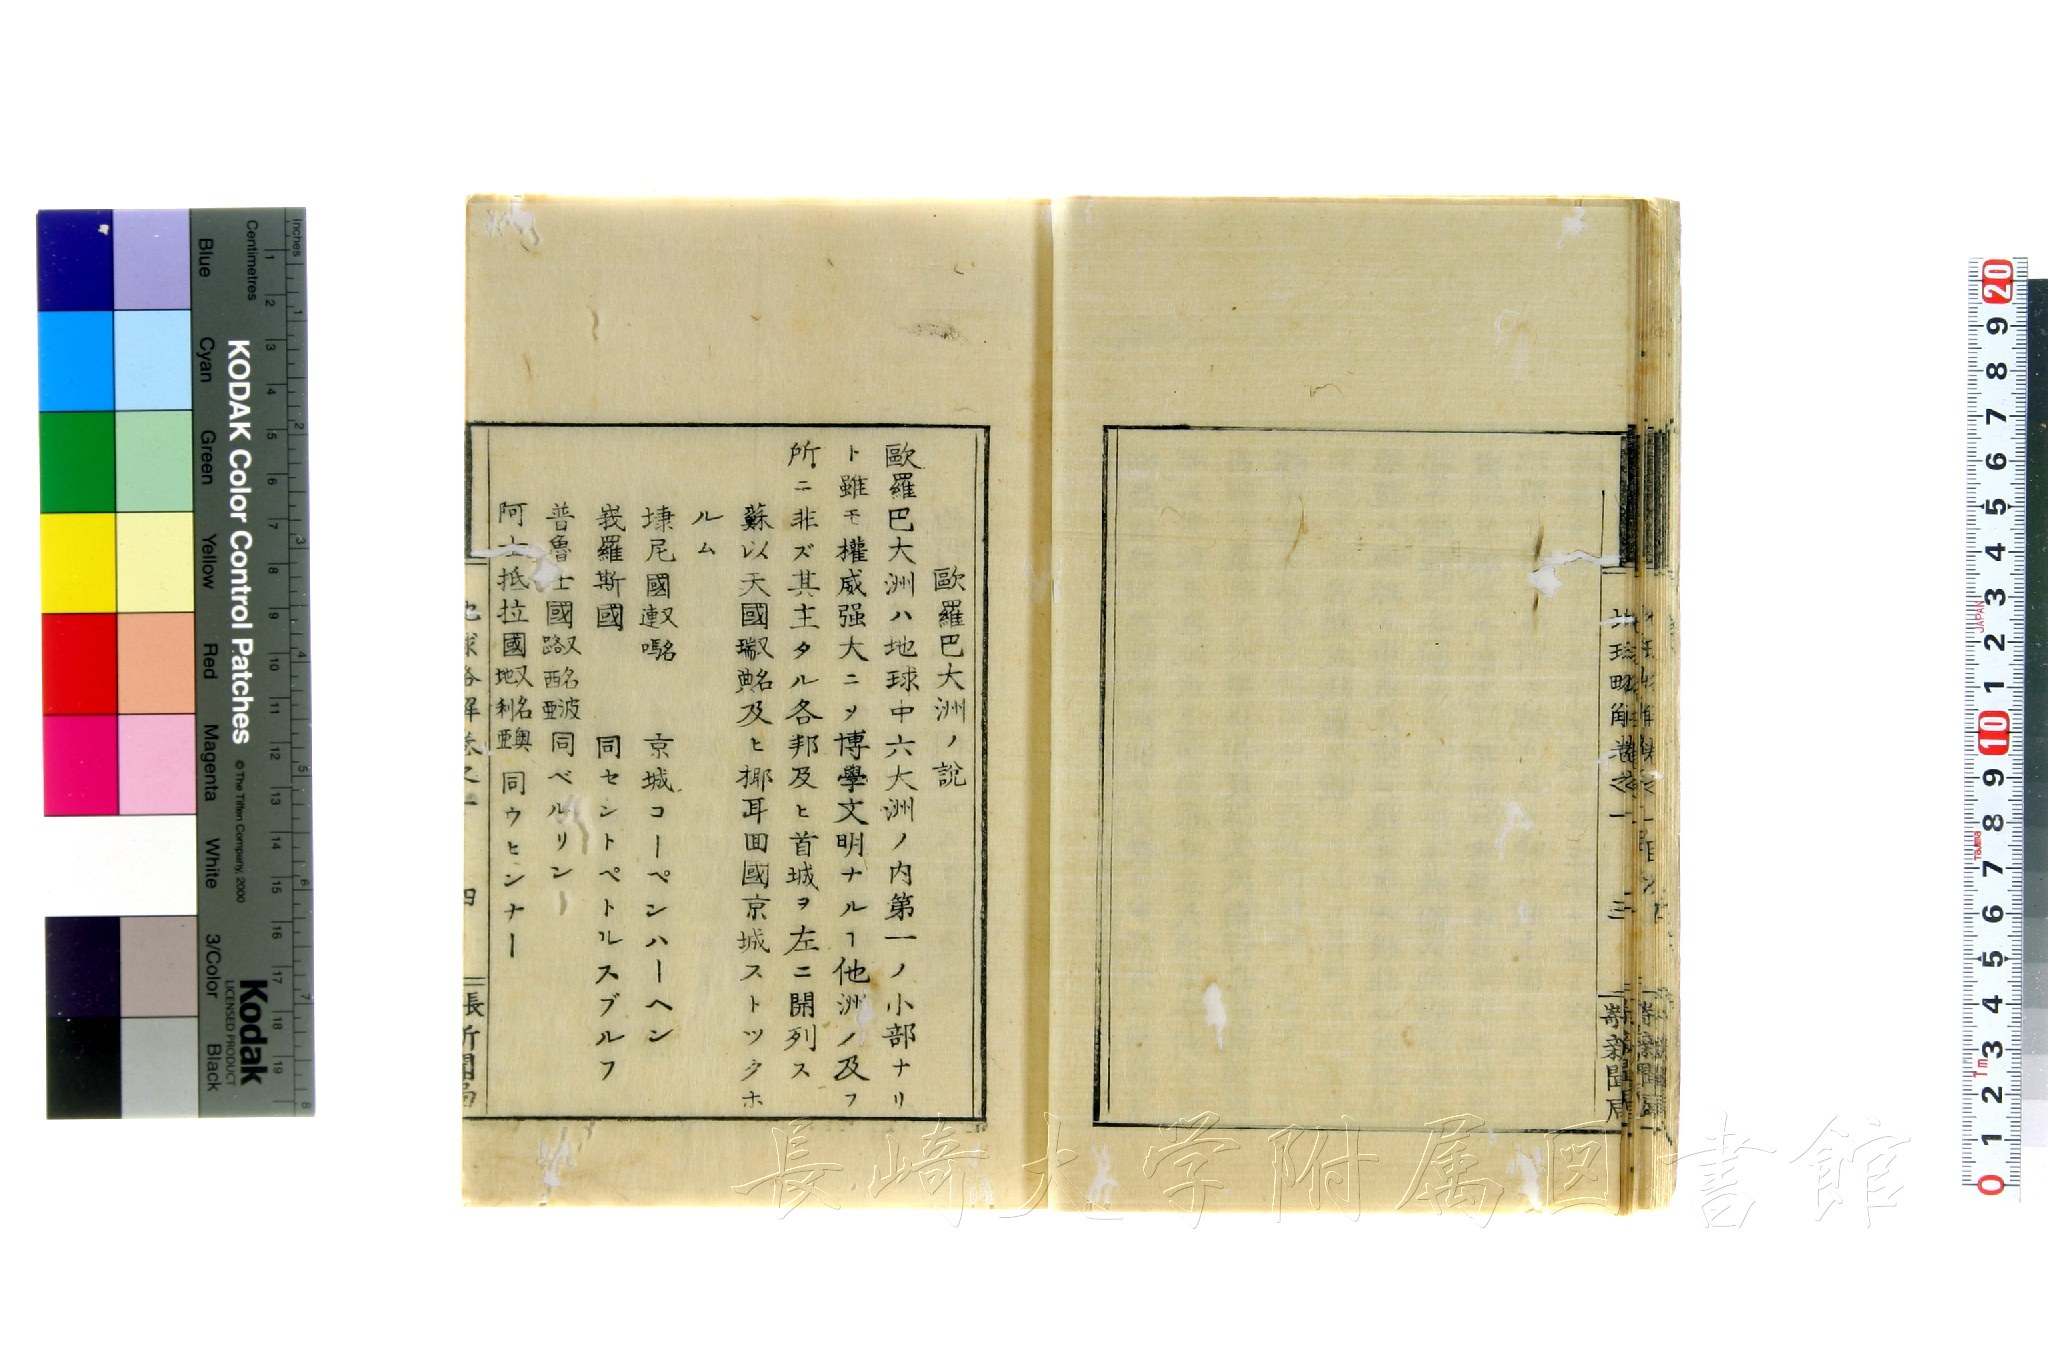 歐羅巴大洲ノ說
歐羅巴大洲ハ地球中六大洲ノ内第一ノ小部ナリ
ト雖モ權威强大ニヲ博學文明ナルヿ他洲ノ及フ
所ニ非ズ其主タル各邦及ヒ首城ヲ左ニ開列ス
蘇以天國又名瑞典及ヒ那耳回國京城ストツクホ
ルム
㻞尼國又名嗹 京城コーペンハーヘン
峩羅斯國 同セントペトルスブルフ
普魯士國又名波路西亜 同ベルリン
阿士抵拉國又名奥地利亜 同ウヒンナー
地球略解巻之一 四 長 新聞局
地球略解巻之一 三 崎新聞局
長崎大学附属図書館
KODAK Color Control Patches
© The Tiffen Company, 2000
Kodak
LICENSED PRODUCT
Inches
Centimetres
Blue
Cyan
Green
Yellow
Red
Magenta
White
3/Color
Black
1 2 3 4 5 6 7 8 9 10 11 12 13 14 15 16 17 18 19
1 2 3 4 5 6 7 8
20 9 8 7 6 5 4 3 2 1 10 9 8 7 6 5 4 3 2 1 0
JAPAN
Tajima